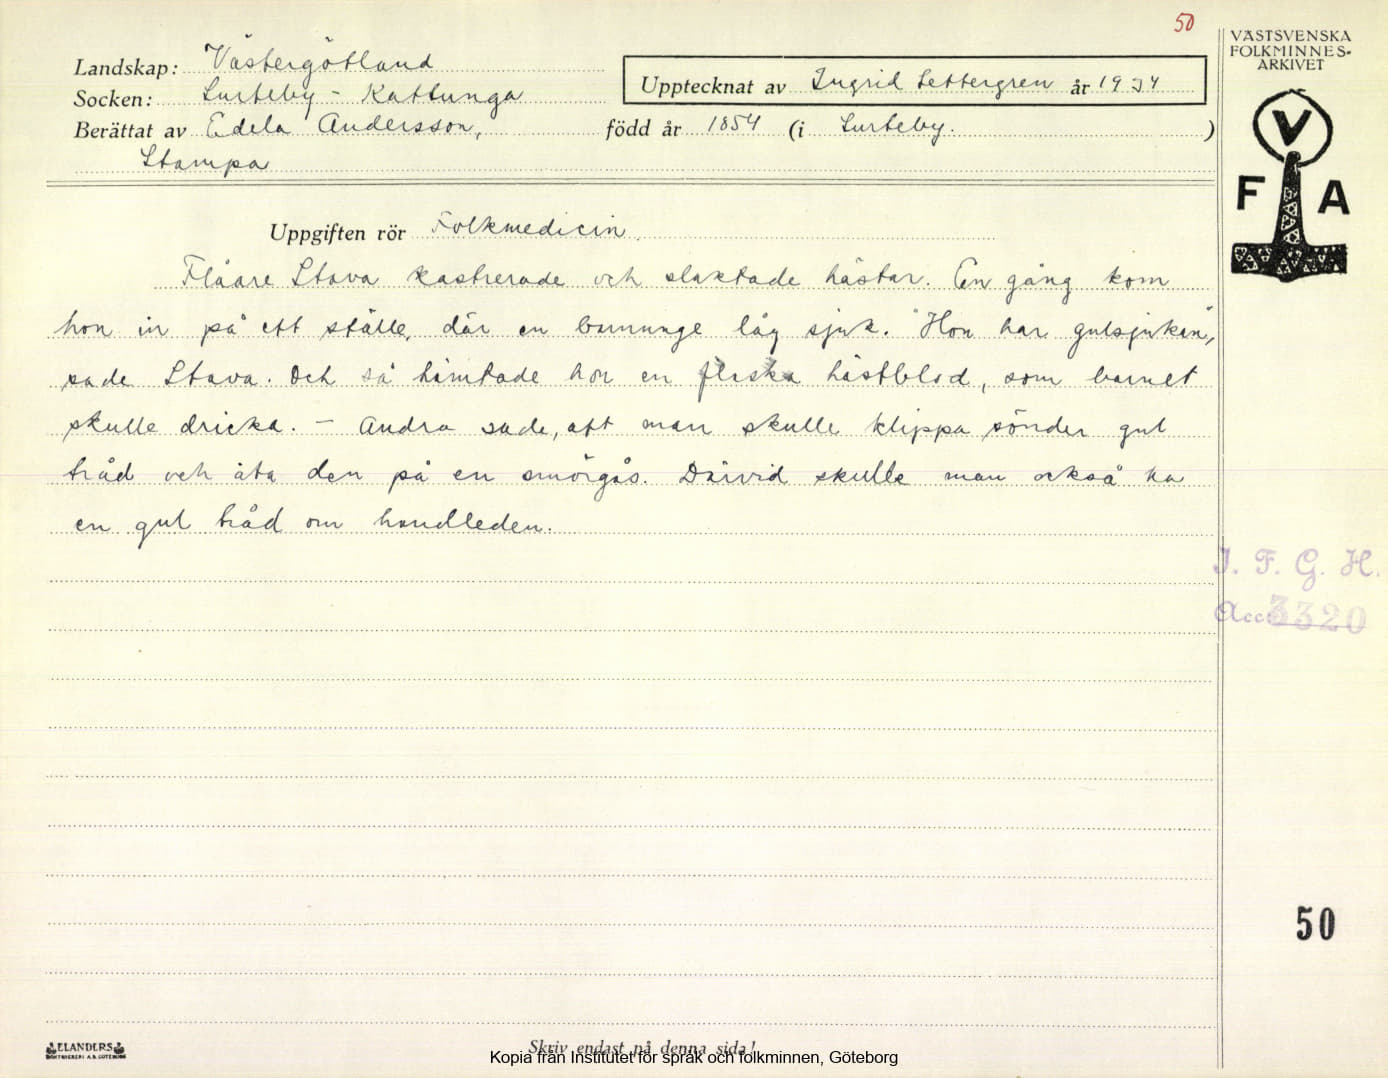 50
VÄSTSVENSKA
FOLKMINNES-
ARKIVET
Landskap: Västergötland
Socken: Surteby - Kattunga
Upptecknat av Ingrid Settergren år 1934
Berättat av Edela Andersson, född år 1854 (i Surteby. )
Stampa
V
F A
Uppgiften rör Folkmedicin.
Flåare Stava kastrerade och slaktade hästar. En gång kom
hon in på ett ställe, där en barnunge låg sjuk. "Hon har gulsjukan",
sade Stava. Och så hämtade hon en flaska hästblod, som barnet
skulle dricka. - Andra sade, att man skulle klippa sönder gul
tråd och äta den på en smörgås. Därvid skulle man också ha
en gul tråd om handleden.
I. F. G. H.
Acc. 3320
50
ELANDERS
BOKTRYCKERI A.B. GÖTEBORG
Skriv endast på denna sida!
Kopia från Institutet för språk och folkminnen, Göteborg